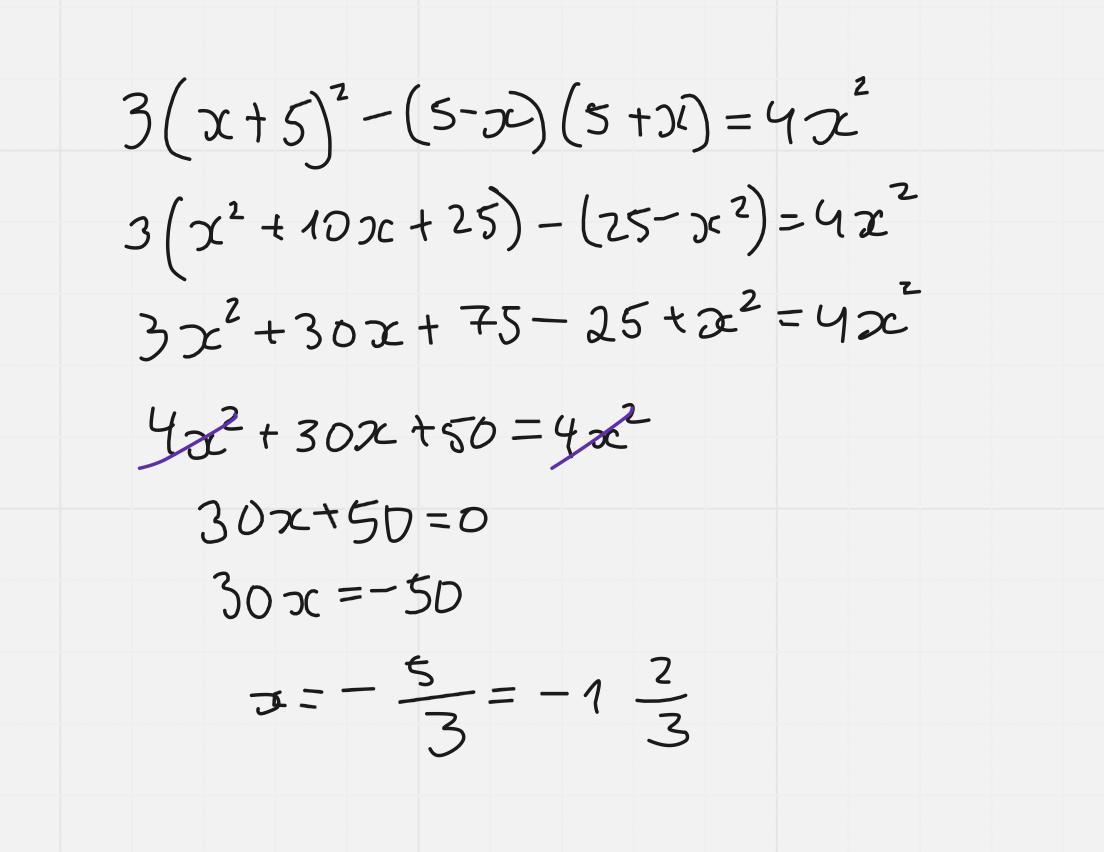 3(x+5)² - (5-x)(5+x) = 4x²
3(x² + 10x + 25) - (25 - x²) = 4x²
3x² + 30x + 75 - 25 + x² = 4x²
4x² + 30x + 50 = 4x²
30x + 50 = 0
30x = -50
x = - 5/3 = -1 2/3